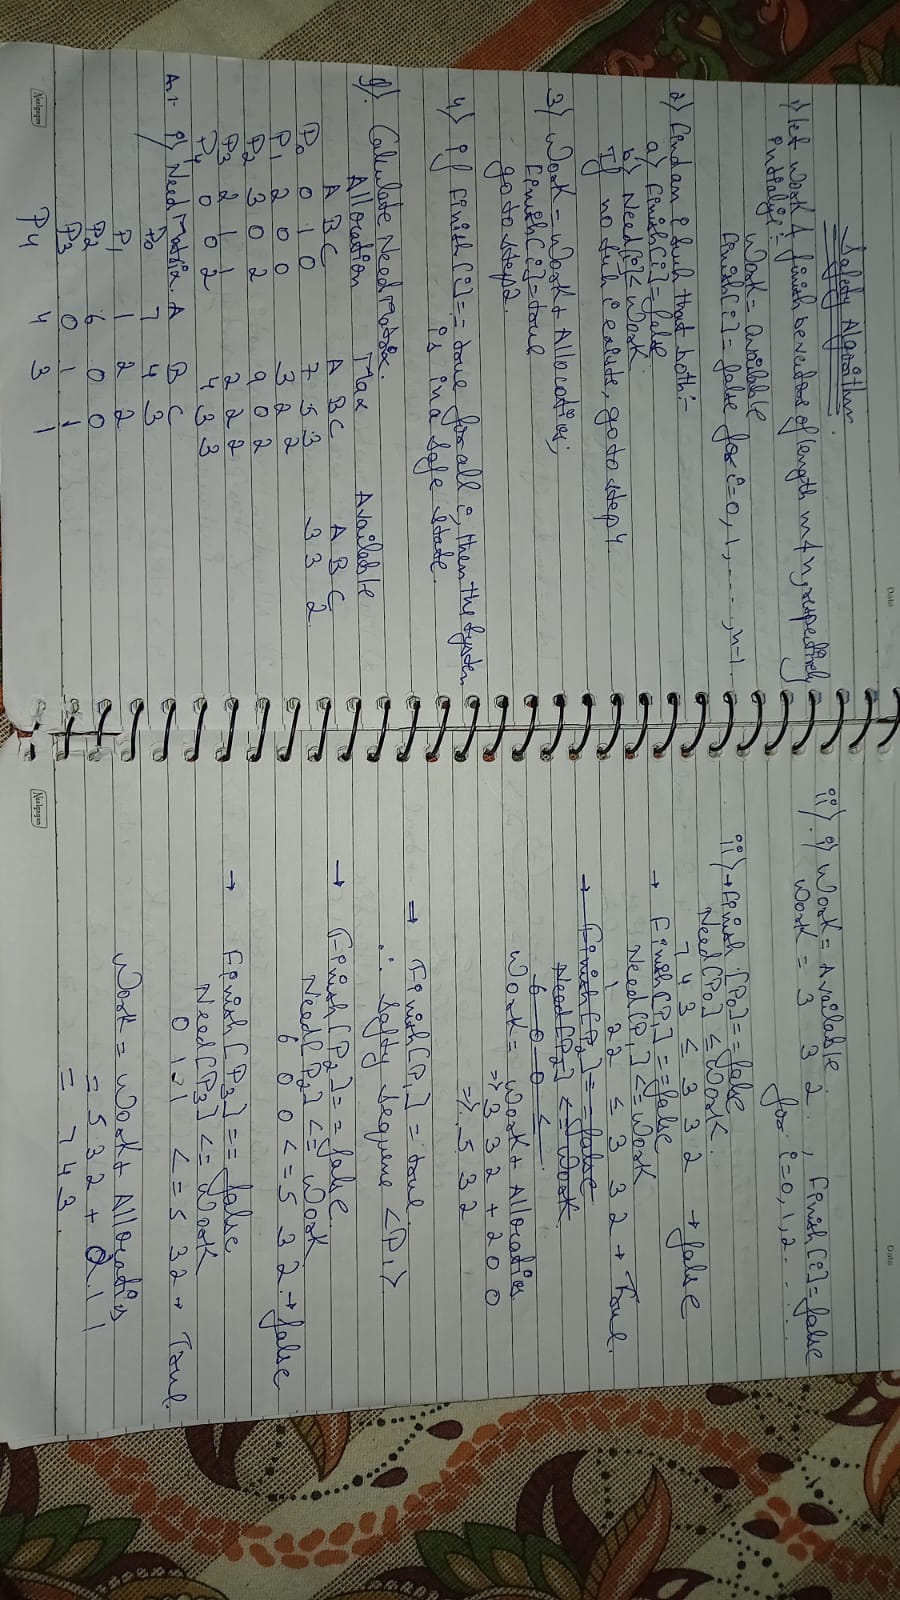 Date
Safety Algorithm
1) let work & finish be vectors of length m & n, respectively
intialize:-
Work = available
finish[i] = false for i=0, 1, ....., n-1.
2) find an i such that both:-
a) Finish[i] = false
b) Need[i] ≤ Work
If no suh i exists, go to step 4.
3) Work = Work + Allocation;
Finish[i] = true
go to step 2.
4) if finish[i] == true for all i, then the system
is in a safe state.
Q). Calculate Need Matrix.
Allocation Max Available
A B C A B C A B C
P0 0 1 0 7 5 3 3 3 2.
P1 2 0 0 3 2 2
P2 3 0 2 9 0 2
P3 2 1 1 2 2 2
P4 0 0 2 4 3 3
A.1- i) Need Matrix. A B C
P0 7 4 3
P1 1 2 2
P2 6 0 0
P3 0 1 1
P4 4 3 1
Neelgagan
Date
ii). i) Work = Available.
Work = 3 3 2. , Finish[i] = false
for i=0, 1, 2......
ii) → Finish [P0] == false
Need[P0] ≤ Work.
7 4 3 ≤ 3 3 2 → false
→ Finish[P1] == false
Need[P1] <= Work
1 2 2 ≤ 3 3 2 → True.
→ Finish[P2] == false
Need[P2] <= Work
6 0 0 ≤
Work = Work + Allocation
=> 3 3 2 + 2 0 0
=> 5 3 2
→ Finish[P1] = true.
∴ Safty Sequene <P1>
→ Finish[P2] == false.
Need[P2] <= Work
6 0 0 <= 5 3 2. → false
→ Finish[P3] == false
Need[P3] <= Work
0 1 1 <= 5 3 2 → True.
Work = Work + Allocation
= 5 3 2 + 2 1 1
= 7 4 3.
Neelgagan